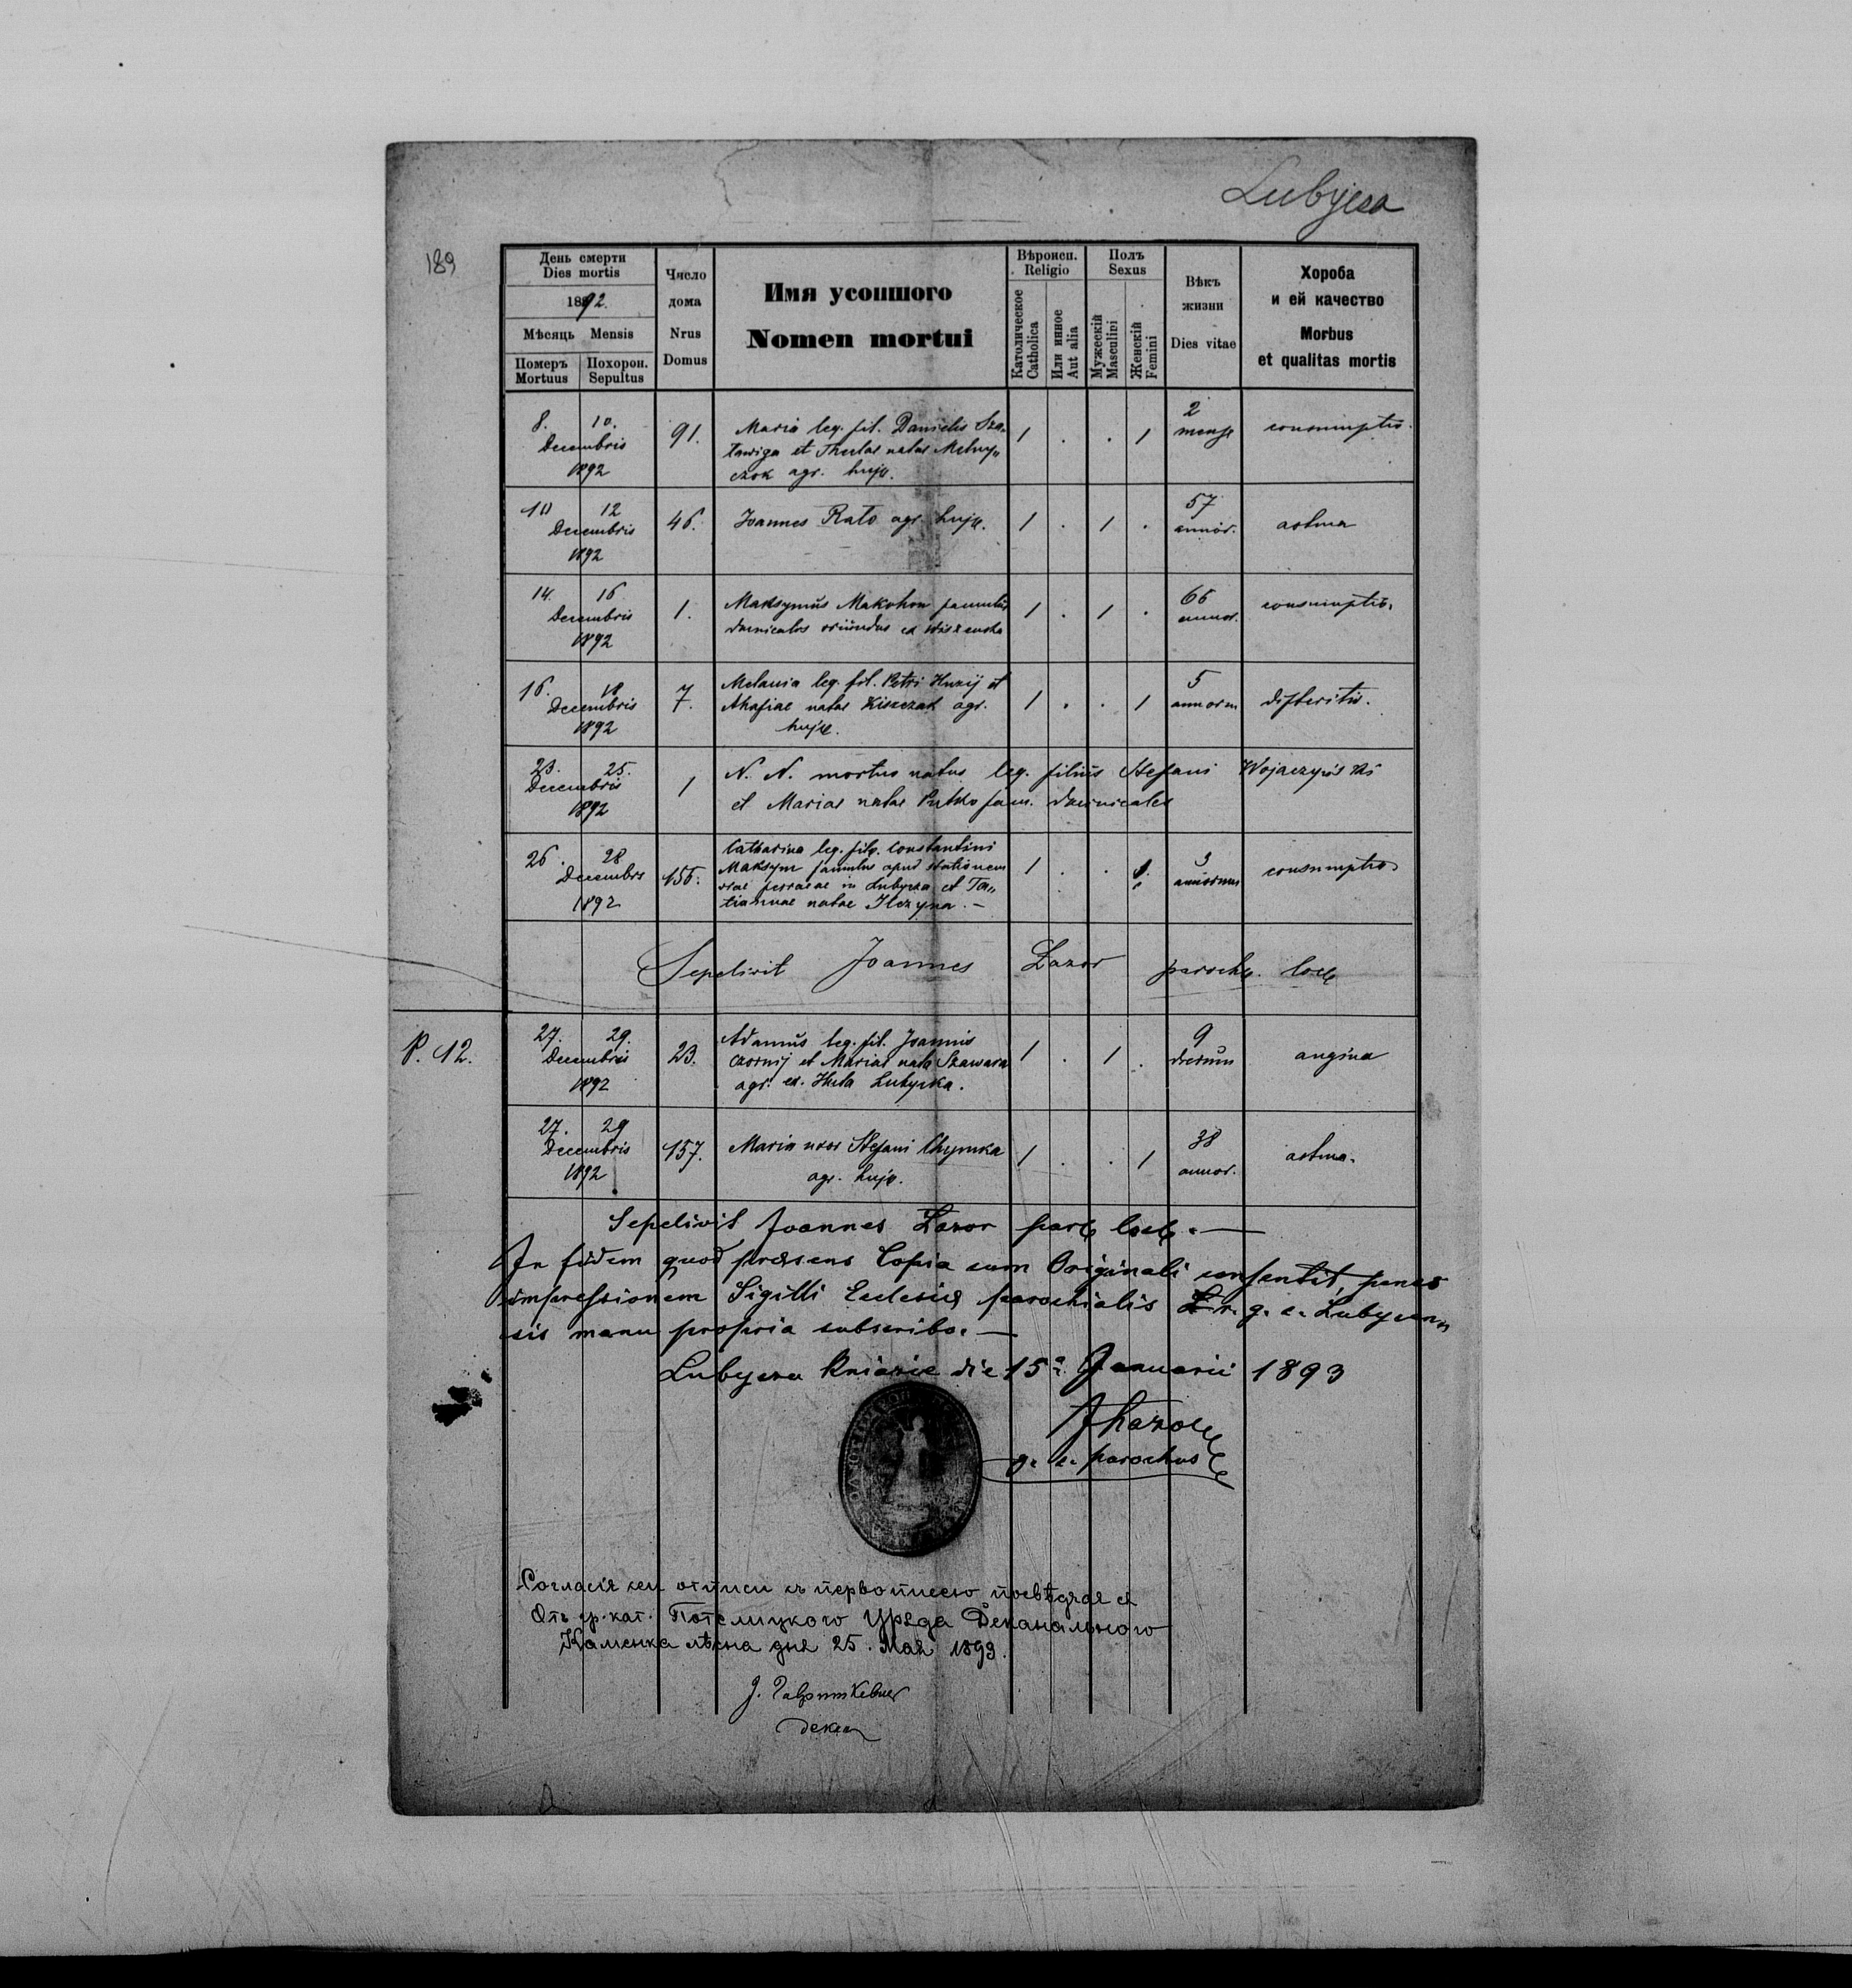 Lubycza
189
День смерти
Dies mortis
1892.
Мѣсяць Mensis
Померъ Mortuus
Похорон. Sepultus
Число дома
Nrus Domus
Имя усопшого
Nomen mortui
Вѣроисп.
Religio
Католическое Catholica
Или инное Aut alia
Полъ
Sexus
Мужескій Masculini
Женскій Femini
Вѣкъ жизни
Dies vitae
Хороба
и ей качество
Morbus
et qualitas mortis
8. 10. Decembris 1892
91.
Maria leg. fil. Danielis Sza-
et Theclae natae Melny„
czok agr. huj.
1 . . 1
2 mense
consumptio.
10 12 Decembris 1892
46.
Joannes Rato agr. huj.
1 . 1 .
57 annor.
astma
14. 16 Decembris 1892
1.
Maksymus Makohon famulus
oriundus ex
1 . 1 .
66 annor.
consumptio.
16. 18 Decembris 1892
7.
Melania leg. fil. Petri Huzij et
Ahafiae natae Kiszczak agr.
huj.
1 . . 1
5 annorum
difteritis.
23. 25. Decembris 1892
1
N. N. mortuo natus leg. filius Stefani
et Mariae natae Putko fam.
26. 28 Decembris 1892
156.
Catharina leg. fil. Constantini
Maksym famulus apud stationem
viae ferraeae in Lubycza et Ta„
tiannae natae Ilczyna. –
1 . . 1.
3 annorum
consumptio
Sepelivit Joannes Łazor paroch. loc.
P. 12.
27. 29. Decembris 1892
23.
Adamus leg. fil. Joannis
Czornij et Mariae nata Szawara
agr. ex. Huta Lubycka.
1 . 1 .
9 dierum
angina
27. 29 Decembris 1892
157.
Maria uxor Stefani Chymka
agr. huj.
1 . . 1
38 annor.
astma.
Sepelivit Joannes Łazor par. loc. —
In fidem quod praesens Copia cum Originali consentit, penes
impressionem Sigilli Eclesiae parochialis r. g. c. Lubycen„
sis manu propria subscribo. —
Lubycza Kniazie die 15 Januarii 1893
JŁazor
g. c. parochus
Согласіє сеи отписи съ первописею посвѣдчає ся
Отъ гр. кат. Потелицкого Уряда Деканального
Каменка лѣсна дня 25. Мая 1893.
декан